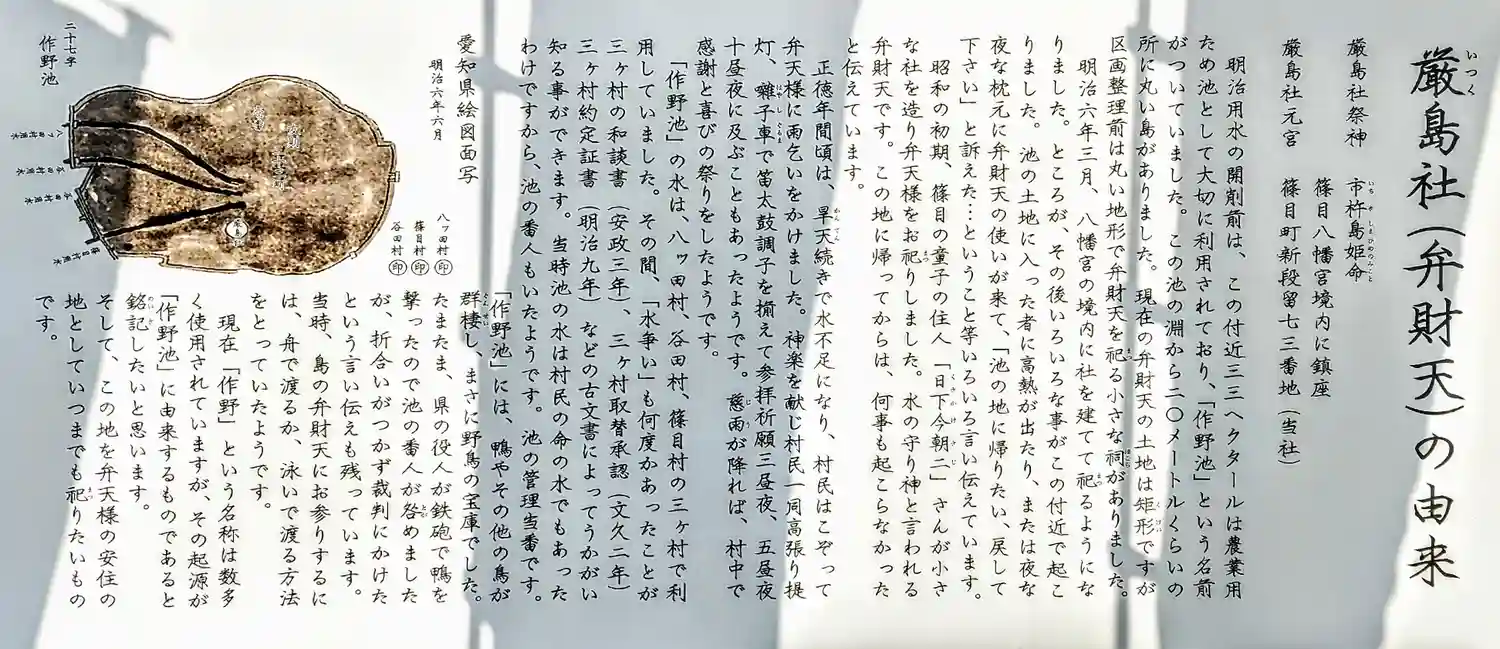 厳島社(弁財天)の由来
厳島社祭神　市杵島姫命
篠目八幡宮境内に鎮座
厳島社元宮　篠目町新段留七三番地(当社)
明治用水の開削前は、この付近三三ヘクタールは農業用
ため池として大切に利用されており、「作野池」という名前
がついていました。この池の淵から二〇メートルくらいの
所に丸い島がありました。現在の弁財天の土地は矩形ですが
区画整理前は丸い地形で弁財天を祀る小さな祠がありました。
明治六年三月、八幡宮の境内に社を建てて祀るようにな
りました。ところが、その後いろいろな事がこの付近で起こ
りました。池の土地に入った者に高熱が出たり、または夜な
夜な枕元に弁財天の使いが来て、「池の地に帰りたい、戻して
下さい」と訴えた…ということ等いろいろ言い伝えています。
昭和の初期、篠目の童子の住人「日下今朝二」さんが小さ
な社を造り弁天様をお祀りしました。水の守り神と言われる
弁財天です。この地に帰ってからは、何事も起こらなかった
と伝えています。
正徳年間頃は、旱天続きで水不足になり、村民はこぞって
弁天様に雨乞いをかけました。神楽を献じ村民一同高張り提
灯、囃子車で笛太鼓調子を揃えて参拝祈願三昼夜、五昼夜
十昼夜に及ぶこともあったようです。慈雨が降れば、村中で
感謝と喜びの祭りをしたようです。
「作野池」の水は、八ッ田村、谷田村、篠目村の三ヶ村で利
用していました。その間、「水争い」も何度かあったことが
三ヶ村の和談書(安政三年)、三ヶ村取替承認(文久二年)
三ヶ村約定証書(明治九年)などの古文書によってうかがい
知る事ができます。当時池の水は村民の命の水でもあった
わけですから、池の番人もいたようです。池の管理当番です。
「作野池」には、鴨やその他の鳥が
群棲し、まさに野鳥の宝庫でした。
たまたま、県の役人が鉄砲で鴨を
撃ったので池の番人が咎めました
が、折合いがつかず裁判にかけた
という言い伝えも残っています。
当時、島の弁財天にお参りするに
は、舟で渡るか、泳いで渡る方法
をとっていたようです。
現在「作野」という名称は数多
く使用されていますが、その起源が
「作野池」に由来するものであると
銘記したいと思います。
そして、この地を弁天様の安住の
地としていつまでも祀りたいもの
です。
愛知県絵図面写
明治六年六月
八ッ田村 印
篠目村 印
谷田村 印
二十七字
作野池
八ッ田村用水
谷田村用水
谷田村用水